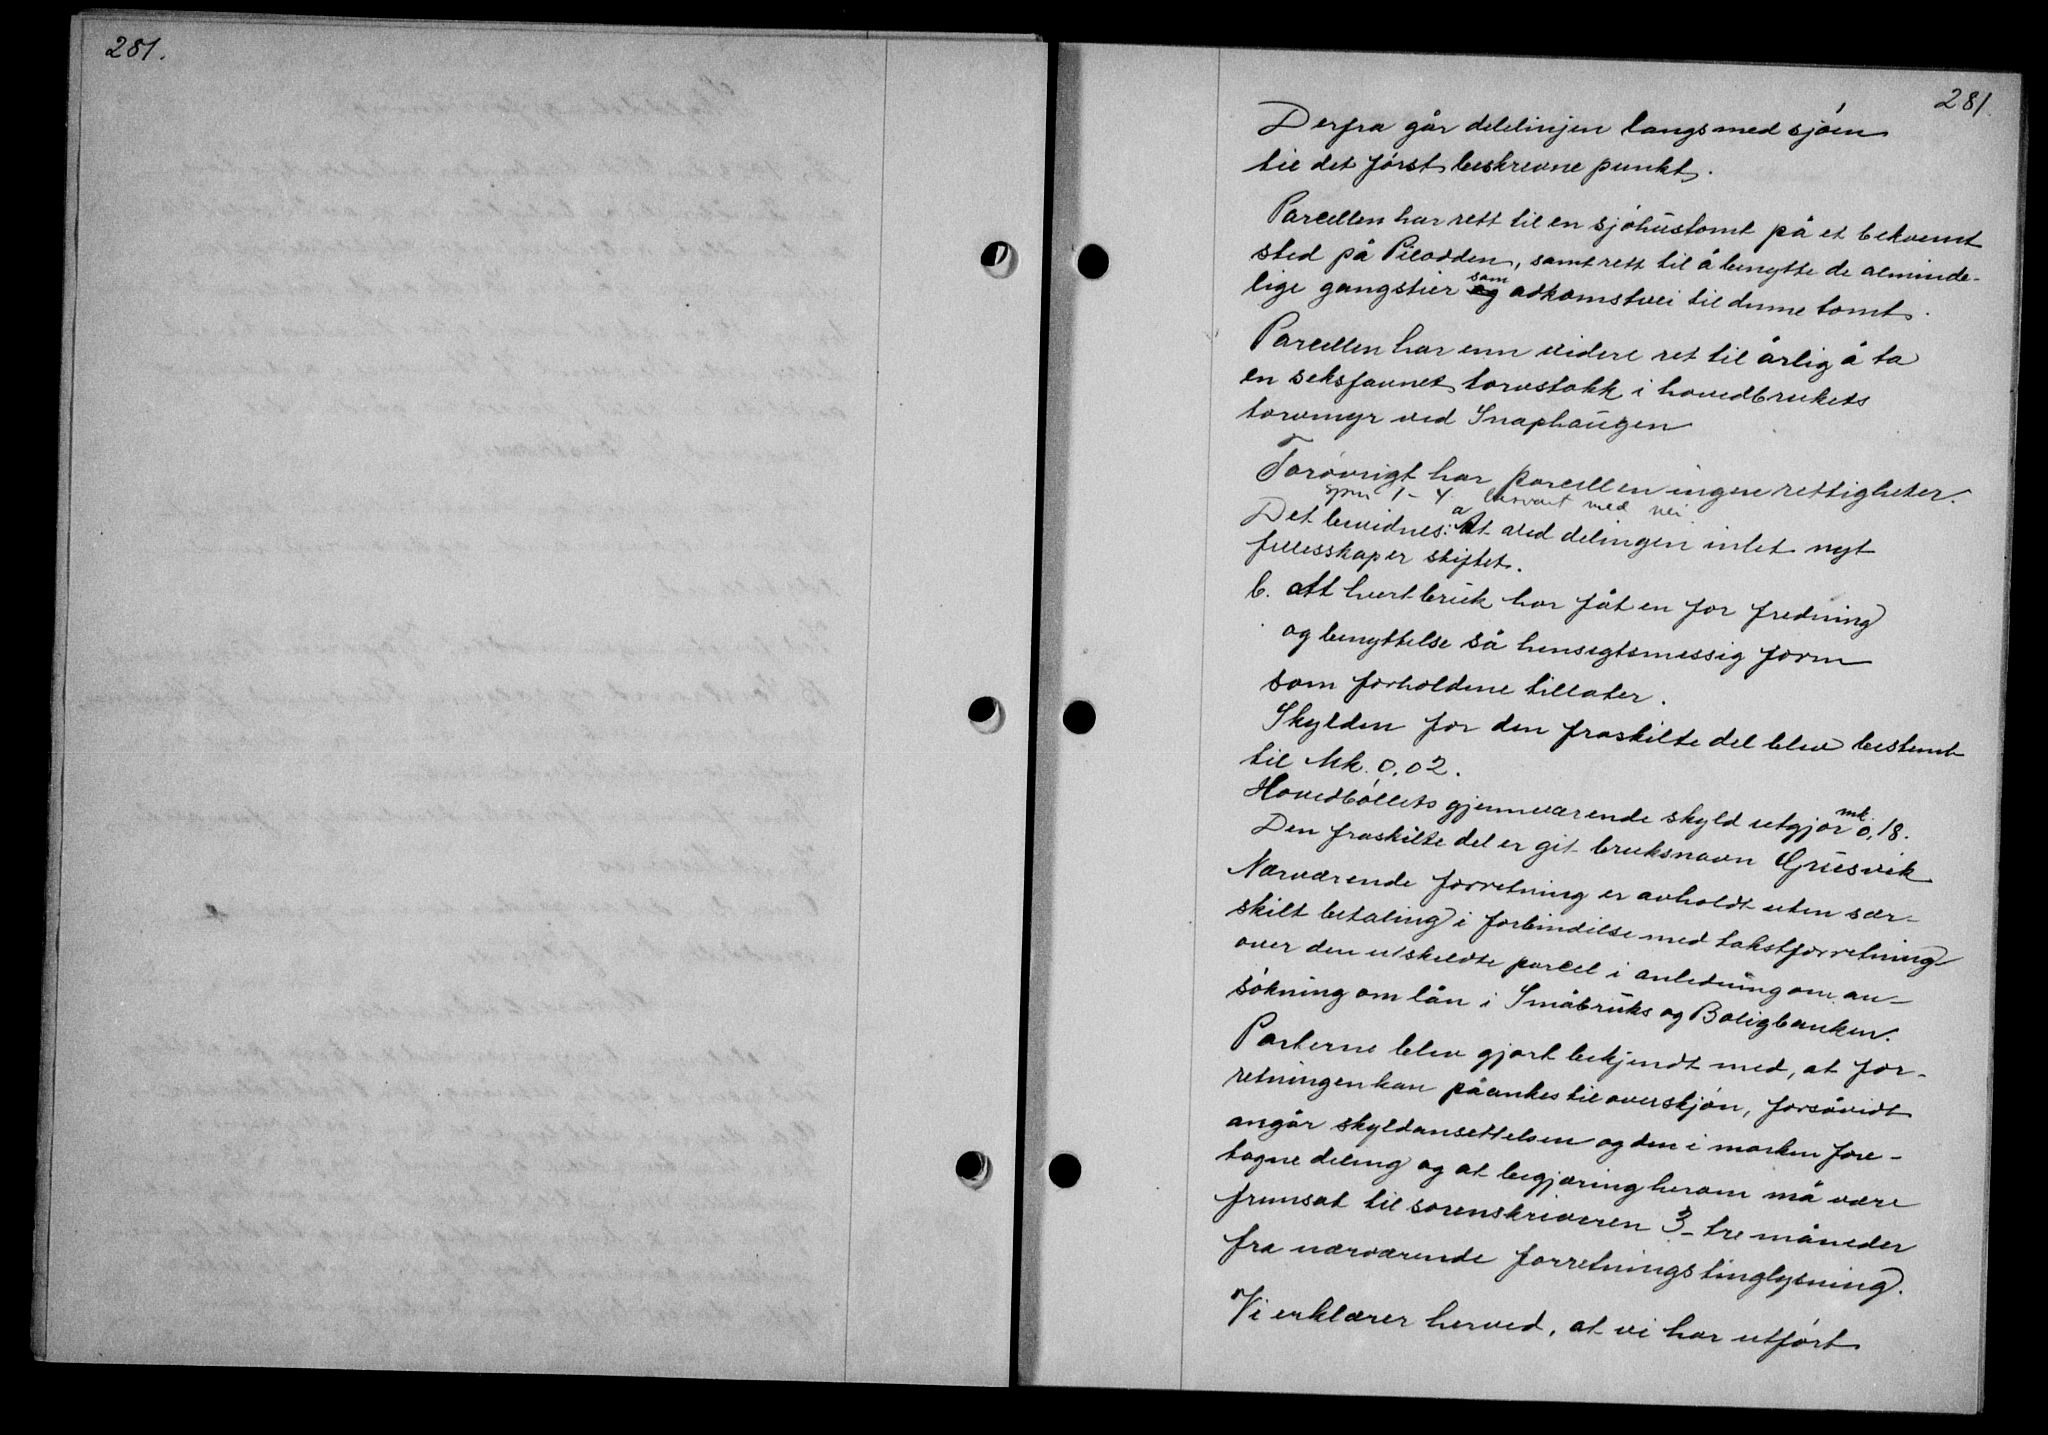 281.
281.
Derfra går delelinjen langsmed sjøen
til det først beskrevne punkt.
Parcellen har rett til en sjøhustomt på et bekvemt
sted på Pilodden, samt rett til å benytte de alminde-
lige gangstier som adkomstvei til denne tomt.
Parcellen har enn videre ret til årlig å ta
en seksfavnet torvstakk i hovedbrukets
torvmyr ved Snaphaugen
Forøvrigt har parcellen ingen rettigheter.
spm 1-4 besvart med nei
Det bevidnes: a At ved delingen intet nyt
fellesskap er stiftet.
b. Att hvert bruk har fåt en for fredning
og benyttelse så hensigtsmessig form
som forholdene tillater.
Skylden for den fraskilte del blev bestemt
til Mk. 0,02.
Hovedbøllets gjenneværende skyld utgjør mk. 0,18.
Den fraskilte del er git bruksnavn Grusvik
Nærværende forretning er avholdt uten sær-
skilt betaling i forbindelse med takstforretning
over den utskildte parcel i anledning om an-
søkning om lån i Småbruks og Boligbanken.
Parterne blev gjort bekjendt med, at for-
retningen kan påankes til overskjøn, forsåvidt
angår skyldansettelsen og den i marken fore-
tagne deling og at begjæring herom må være
fremsat til sorenskriveren 3 - tre måneder
fra nærværende forretnings tinglysning.
Vi erklærer herved, at vi har utført